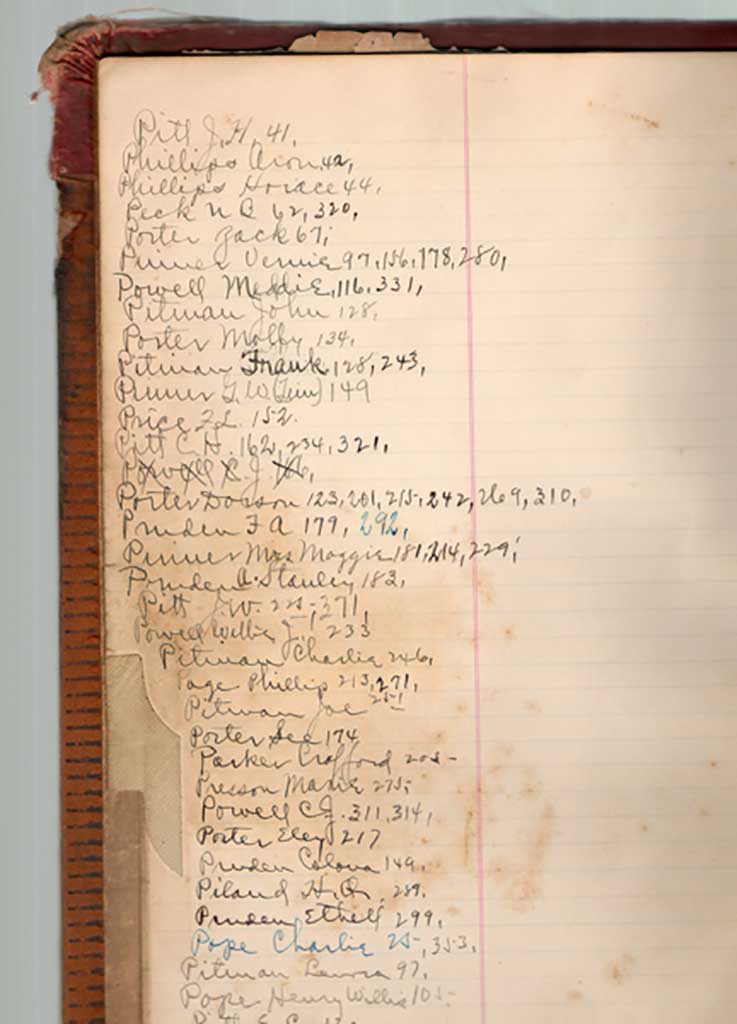 Pitt J. H. 41,
Phillips Aron 42,
Phillips Horace 44,
Peck N B 62, 320,
Porter Zack 67,
Pinner Vernie 97, 156, 178, 280,
Powell Meddie, 116, 331,
Pitman John 128,
Porter Molly 134,
Pitman Frank 128, 243,
Pinner J. W. (Jim) 149
Price Z. L. 152.
Pitt C. H. 162, 234, 321,
Powell C. J.
Porter Dorson 123, 201, 215, 242, 269, 310,
Pruden F A 179, 292,
Pinner Mrs Maggie 181, 214, 229,
Pruden A. Stanley 182,
Pitt J. W. 225, 371,
Powell Willie J. 233
Pitman Charlie 246,
Page Phillip 213, 271,
Pitman Joe 251
Porter 174
Parker Crafford 205-
Presson Marie 275,
Powell C. J. 311, 314,
Porter Eley 217
Pruden Colona 149,
Piland H. 289.
Pruden Ethell 299,
Pope Charlie 25-, 353.
Pitman Laura 97.
Pope Henry Willie 105-
Pitt E. C.